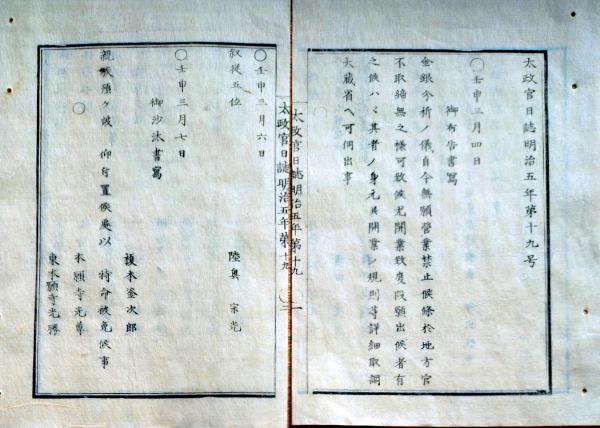 太政官日誌明治五年第十九号
〇壬申三月四日
御布告書写
金銀分析ノ儀自今無願営業禁止候條於地方官
不取締無之様可致候尤開業致度段願出候者有
之候ハヽ其者ノ身元其開業ノ規則等詳細取調
大蔵省ヘ可伺出事
太政官日誌明治五年第十九
〇壬申三月六日
陸奥宗光
叙従五位
〇壬申三月七日
御沙汰書写
榎本釜次郎
親戚預ケ被 仰付置候處以 特命被免候事
〇
本願寺光尊
東本願寺光勝